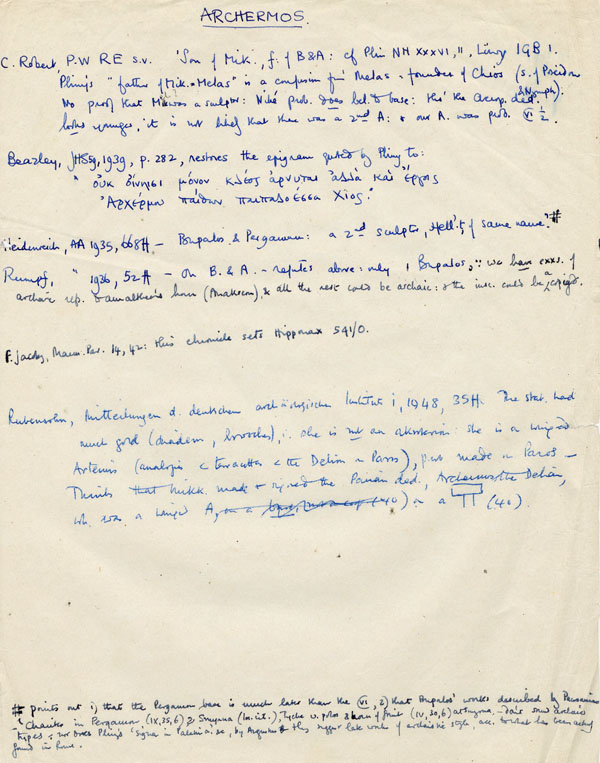 ARCHERMOS.
C. Robert P.W RE s.v. 'Son of Mik.', f. of B&A: cf Plin NH XXXVI, 11, Löwy IGB 1.
Pliny's "father of Mik. = Melas" is a confusion fm Melas - founder of Chios (s. of Poseidon & Nymph).
No proof that Mik was a sculptor: Niké prob. does bel. to base: tho' the Acrop. ded.
looks younger, it is not likely that there was a 2nd A: & our A. was prod. VI ½
Beazley, JHS 59, 1939, p. 282, restores the epigram quoted by Pliny to:
" οὐκ οἴνῃσι μόνον κλέος ἄρνυται ἀλλὰ καὶ ἔργοις
Ἀρχέρμου παίδων παιπαλόεσσα Χίος."
Heidenreich, AA 1935, 668ff - Boupalos & Pergamon: a 2nd sculptor, Hell'st of same name. #
Rumpf, " 1936, 52ff - on B. & A. - refutes above: only 1 Boupalos, ∵ we have exx. of
archaic rep. Amaltheia's horn (Anakreon), & all the rest could be archaic: & the insc. could be a copied.
F. Jacoby, Marm. Par. 14, 42: this chronicle sets Hipponax 541/0.
Rubensohn, Mitteilungen d. deutschen archäologischen Instituts i, 1948, 35ff. The stat. had
much gold (diadem, brooches), ∴ she is not an akroterion: she is a winged
Artemis (analogies < terracottas < the Delion on Paros), prob made on Paros -
Thinks that Mikk. made & signed the Parian ded., Archermos the Delian,
wh. was a winged A, on a (40) on a Π (40).
# points out 1, that the Pergamon base is much later than the VI, 2) that Bupalos' works described by Pausanias
- Charites in Pergamon (IX, 35, 6) & Smyrna (loc. cit.), Tyche w. polos & horn of fruit (IV, 30, 6) at Smyrna - don't sound archaic
types; nor does Pliny's 'signa in Palatio
found in Rome.